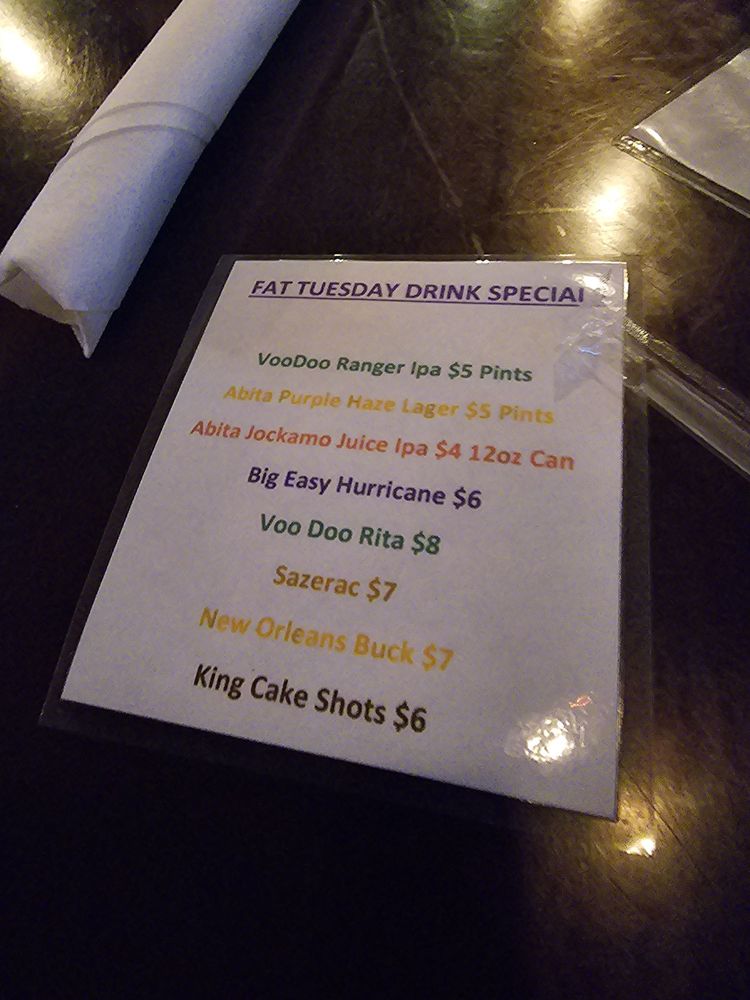 FAT TUESDAY DRINK SPECIAL
VooDoo Ranger Ipa $5 Pints
Abita Purple Haze Lager $5 Pints
Abita Jockamo Juice Ipa $4 12oz Can
Big Easy Hurricane $6
Voo Doo Rita $8
Sazerac $7
New Orleans Buck $7
King Cake Shots $6